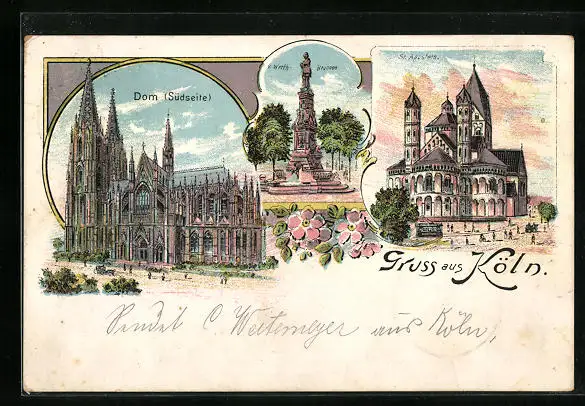 Dom (Südseite)
v. Werth-Brunnen
St. Aposteln.
Gruss aus Köln.
Sendet C. Weitemeyer aus Köln,